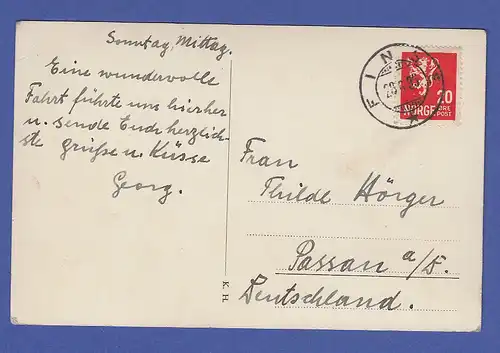 Sonntag, Mittag.
Eine wundervolle
Fahrt führte uns hierher
u. sende Euch herzlich-
ste Grüße u. Küsse
Georg.
FINSE
20
ØRE
NORGE POST
Frau
Thilde Hörger
Passau a/D.
Deutschland.
K. H.